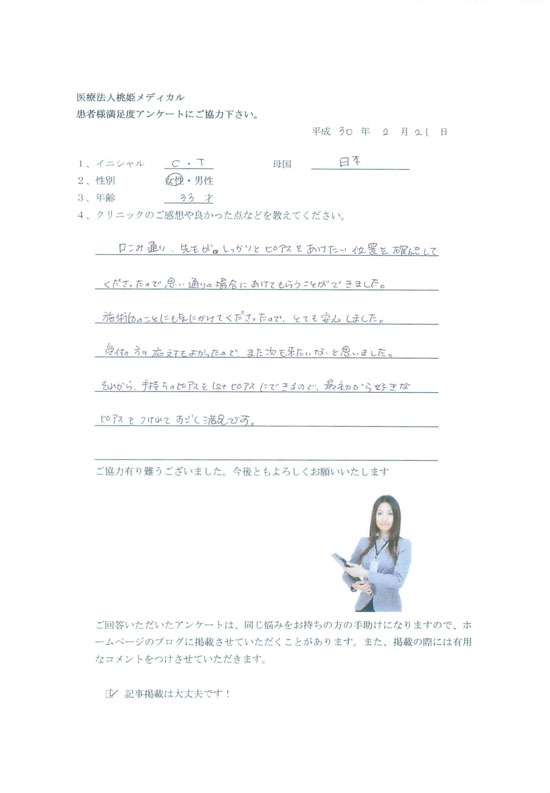 医療法人桃姫メディカル
患者様満足度アンケートにご協力下さい。
平成 30 年 2 月 21 日
1、イニシャル C・T 母国 日本
2、性別 女性・男性
3、年齢 33 才
4、クリニックのご感想や良かった点などを教えてください。
口こみ通り、先生がしっかりとピアスをあけたい位置を確認して
くださったので思い通りの場合にあけてもらうことができました。
施術後のことにも気にかけてくださったので、とても安心しました。
受付の方の応対もよかったので、また次も来たいな、と思いました。
それから、手持ちのピアスを1stピアスにできるので、最初から好きな
ピアスをつけれてすごく満足です。
ご協力有り難うございました。今後ともよろしくお願いいたします
ご回答いただいたアンケートは、同じ悩みをお持ちの方の手助けになりますので、ホ
ームページのブログに掲載させていただくことがあります。また、掲載の際には有用
なコメントをつけさせていただきます。
記事掲載は大丈夫です！